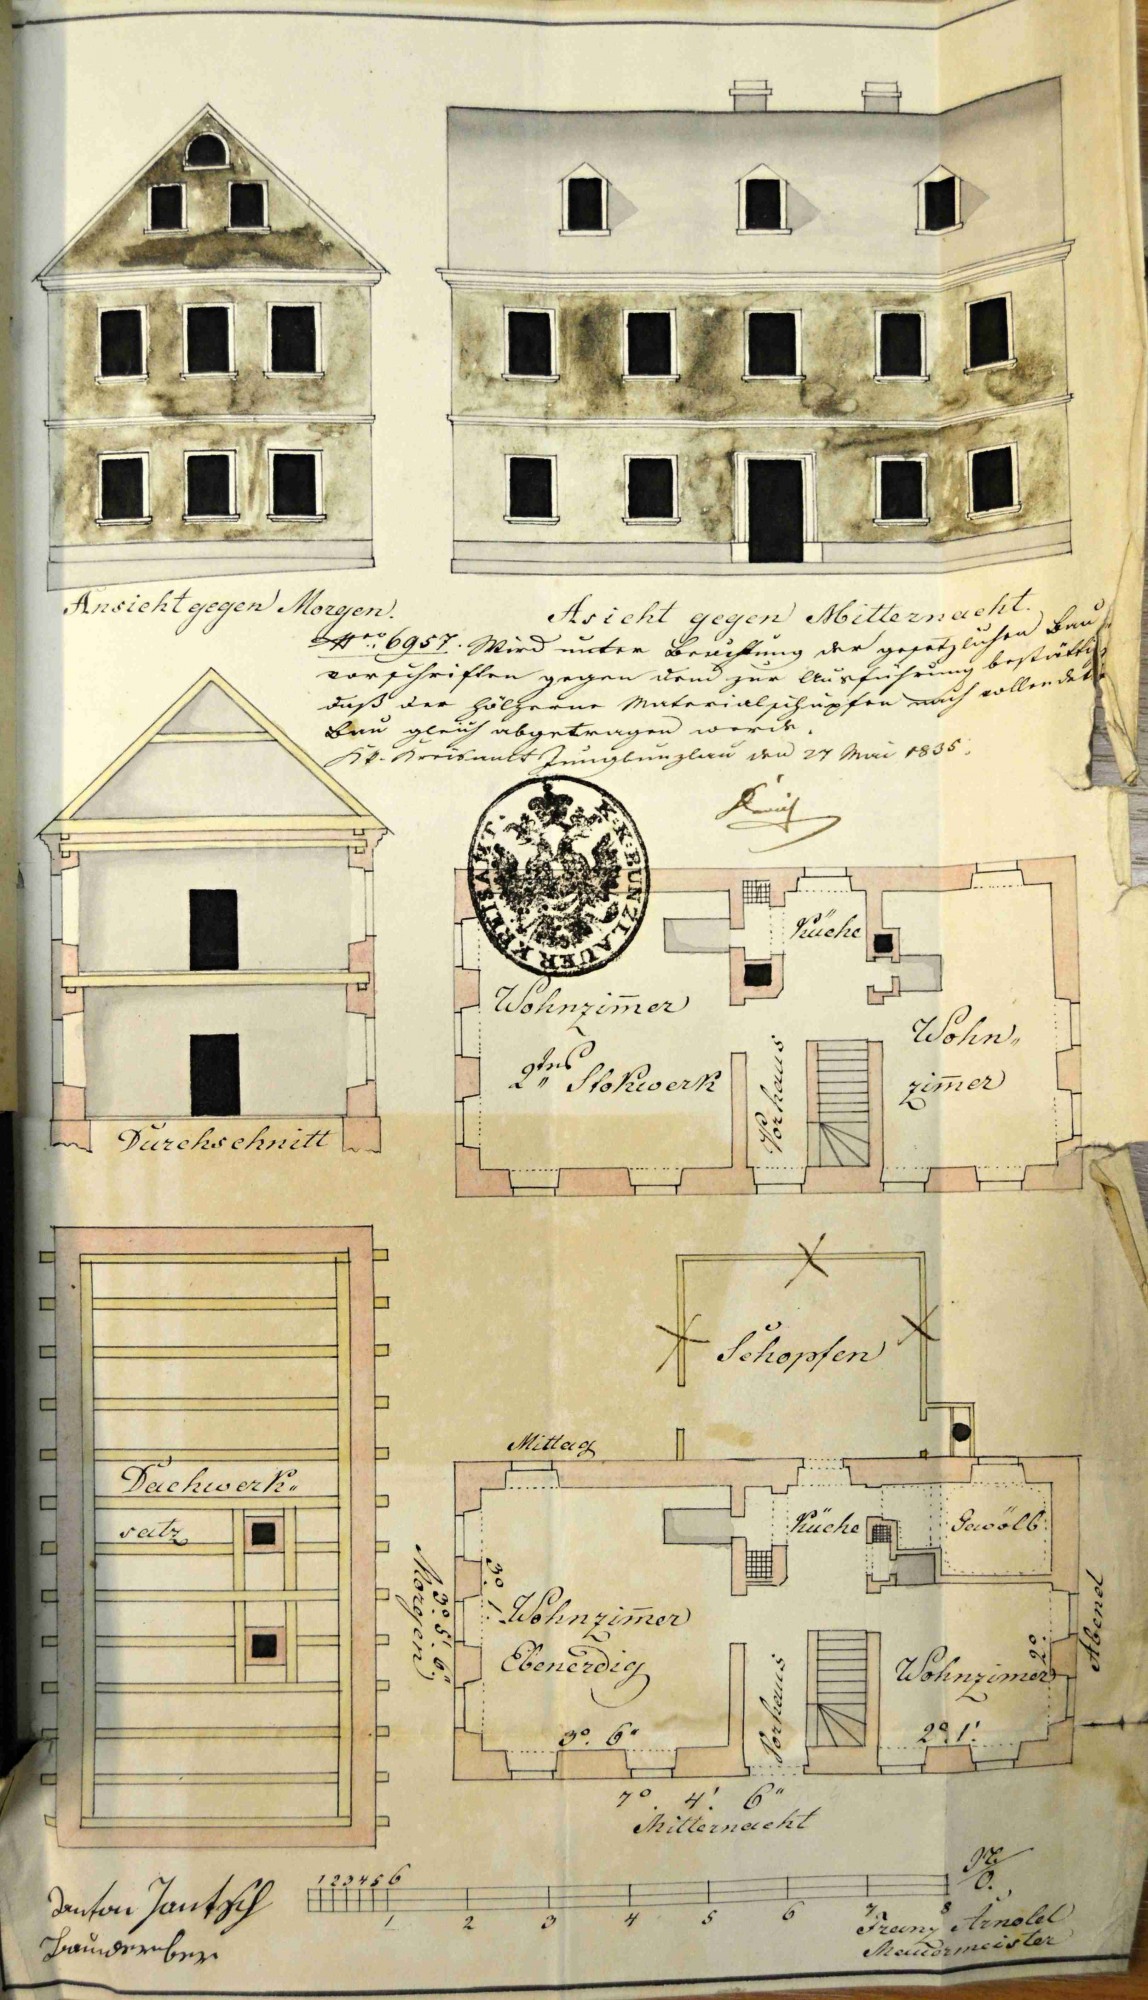 Ansicht gegen Morgen.
Asicht gegen Mitternacht.
Nro 6957. Wird unter Beachtung der gesetzlichen Bau
vorschriften gegen dem zur Ausführung bestättigt
daß der hölzerne Materialschupfen nach vollendeten
Bau gleich abgetragen werde.
KK. Kreisamt Jungbunzlau den 27 Mai 1835.
K.K. BUNZLAUER KREISAMT.
Durchschnitt
Küche
Wohnzim̅er
2tes Stokwerk
Vorhaus
Wohn„
zim̅er
Schopfen
Dachwerk„
satz
Mittag
Küche
Gewölb
Morgen
3° 5' 6"
3° 1'
Wohnzim̅er
Ebenerdig
3° 6"
Vorhaus
Wohnzimer
2°
2° 1'
Abend
7° 4' 6"
Mitternacht
1 2 3 4 5 6
1 2 3 4 5 6 7 8
Anton Jantsch
Franz Arnold
Mauermeister